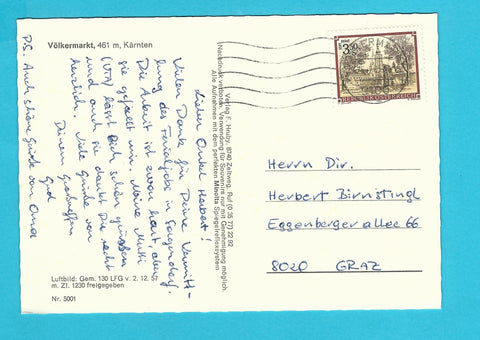 Völkermarkt, 461 m, Kärnten
Lieber Onkel Herbert!
Vielen Dank für Deine Vermitt-
lung des Ferialjobs in
Die Arbeit ist zwar hart, aber
sie gefällt mir. Meine Mutti
läßt Dich schön grüßen
und auch sie dankt Dir recht
herzlich. Viele Grüße von
Deinem Großneffen
Gerd
P.S. Auch schöne Grüße von Oma
Luftbild: Gem. 130 LFG v. 2. 12. 57
m. Zl. 1230 freigegeben
Nr. 5001
Verlag F. Hruby, 8740 Zeltweg, Ruf (0 35 77) 22 92
Nachdruck verboten. Verwendung für Souvenirs nur mit Genehmigung möglich.
Alle Aufnahmen mit dem perfekten Minolta Spiegelreflexsystem
3.50
REPUBLIK ÖSTERREICH
Herrn Dir.
Herbert Birnstingl
Eggenberger allee 66
8020 GRAZ